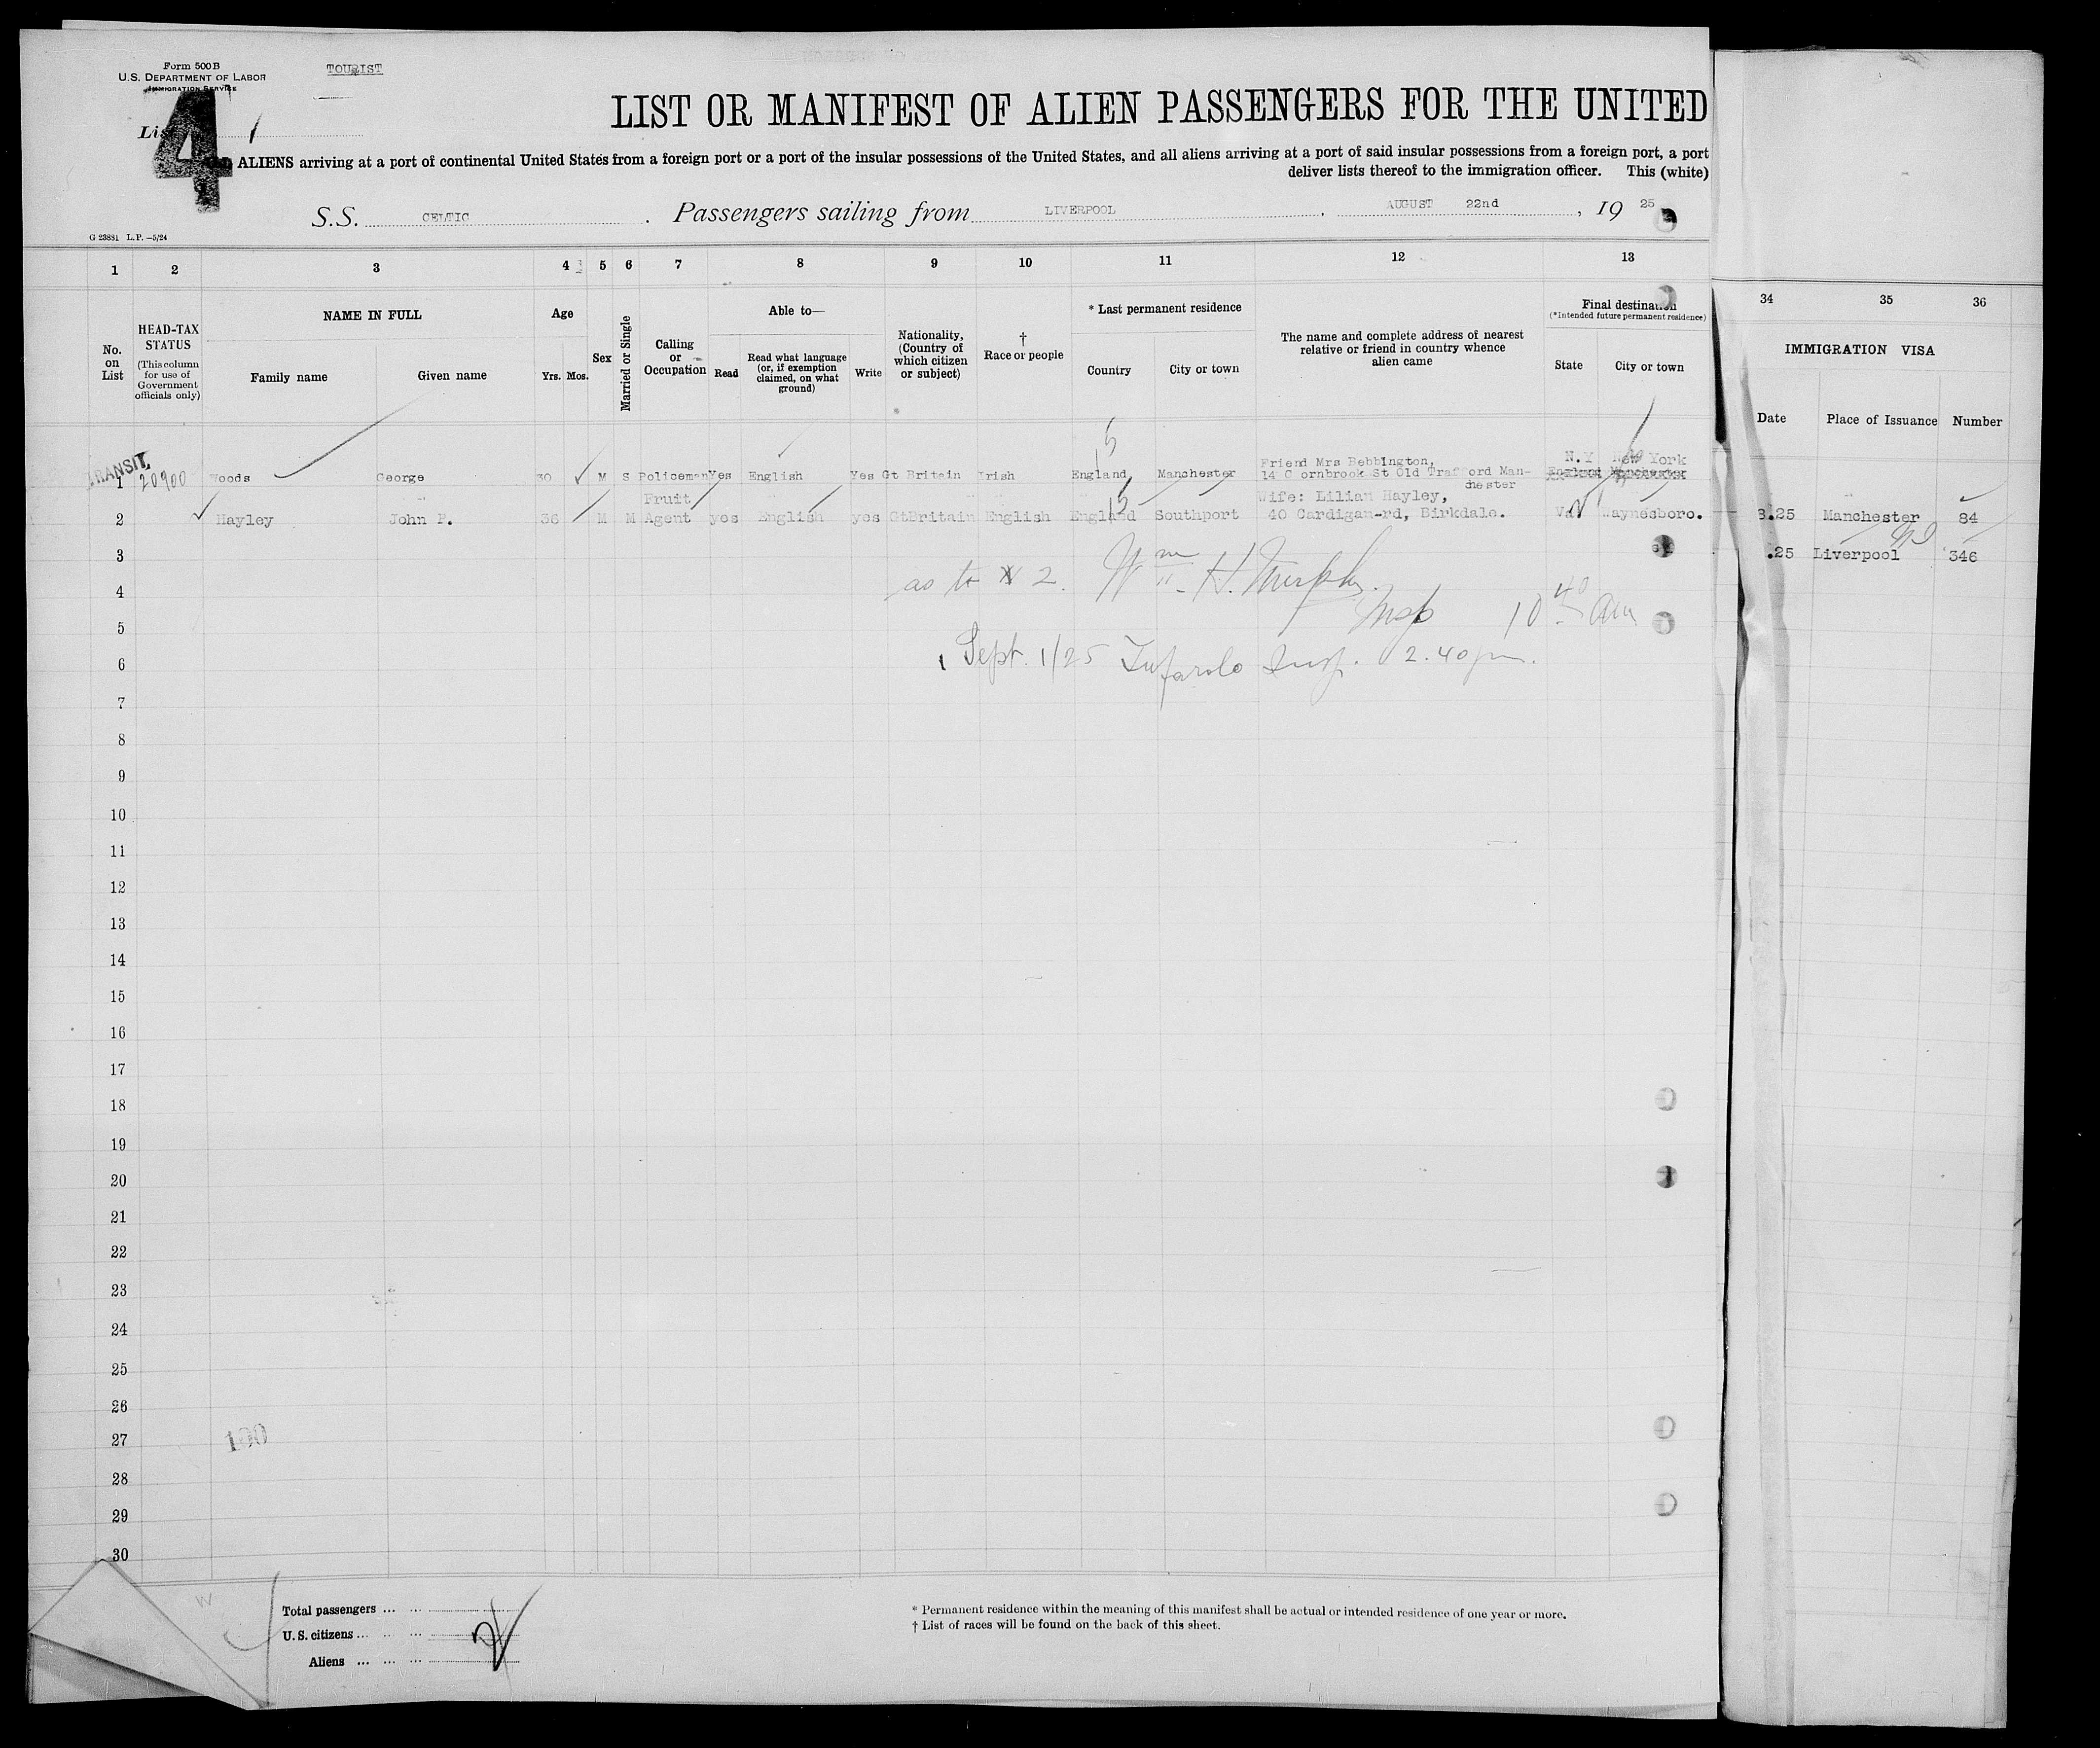 Form 500 B
U.S. DEPARTMENT OF LABOR
IMMIGRATION SERVICE
TOURIST
4
1
LIST OR MANIFEST OF ALIEN PASSENGERS FOR THE UNITED
ALIENS arriving at a port of continental United States from a foreign port or a port of the insular possessions of the United States, and all aliens arriving at a port of said insular possessions from a foreign port, a port
deliver lists thereof to the immigration officer. This (white)
S.S. CELTIC . Passengers sailing from LIVERPOOL . AUGUST 22nd , 19 25
G 23831 L.P. —5/24
1 2 3 4 5 6 7 8 9 10 11 12 13
34 35 36
No. on List
HEAD-TAX STATUS
(This column for use of Government officials only)
NAME IN FULL
Family name Given name
Age
Yrs. Mos.
Sex
Married or Single
Calling or Occupation
Able to—
Read
Read what language (or, if exemption claimed, on what ground)
Write
Nationality, (Country of which citizen or subject)
† Race or people
* Last permanent residence
Country City or town
The name and complete address of nearest relative or friend in country whence alien came
Final destination
(*Intended future permanent residence)
State City or town
IMMIGRATION VISA
Date Place of Issuance Number
TRANSIT
1 20900 Woods George 30 M S Policeman Yes English Yes Gt Britain Irish England Manchester Friend Mrs Bebbington, 14 C ornbrook St Old Trafford Manchester N.Y New York
2 Hayley John P. 36 M M Fruit Agent yes English yes GtBritain English England Southport Wife: Lilian Hayley, 40 Cardigan-rd, Birkdale. Va. Waynesboro.
.25 Manchester 84
.25 Liverpool 346
3
as to 2. Wm. H. Murphy.
4
Insp 10 40 am
5
Sept. 1/25 Insp. 2.40 pm.
6
7
8
9
10
11
12
13
14
15
16
17
18
19
20
21
22
23
24
25
26
27
28
29
30
Total passengers ... ...
U. S. citizens ... ...
Aliens ... ... ...
2
* Permanent residence within the meaning of this manifest shall be actual or intended residence of one year or more.
† List of races will be found on the back of this sheet.